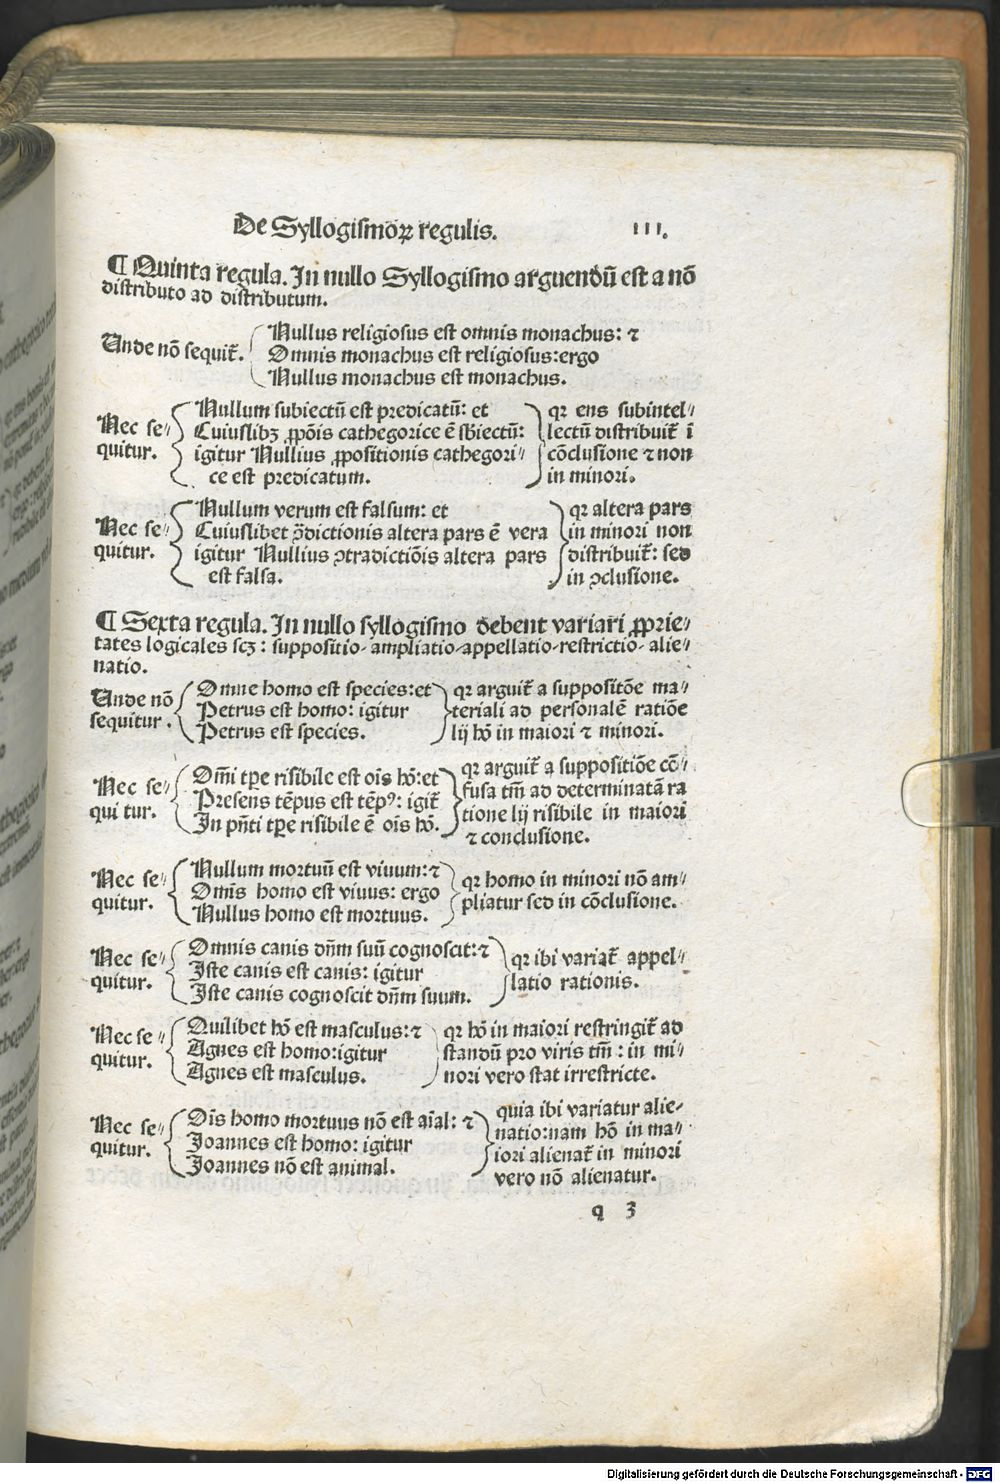 De Syllogismoꝝ regulis. III.
¶ Quinta regula. In nullo Syllogismo arguendū est a nō
distributo ad distributum.
Unde nō sequit̄.
Nullus religiosus est omnis monachus: ⁊
Omnis monachus est religiosus: ergo
Nullus monachus est monachus.
Nec se⸗
quitur.
Nullum subiectū est predicatū: et
Cuiuslibꝫ ꝓpōis cathegorice ē sbiectū:
igitur Nullius ꝓpositionis cathegori⸗
ce est predicatum.
qꝛ ens subintel⸗
lectū distribuit̄ ī
cōclusione ⁊ non
in minori.
Nec se⸗
quitur.
Nullum verum est falsum: et
Cuiuslibet ꝯ̄dictionis altera pars ē vera
igitur Nullius ꝯtradictiōis altera pars
est falsa.
qꝛ altera pars
in minori non
distribuit̄: sed
in ꝯclusione.
¶ Sexta regula. In nullo syllogismo debent variari ꝓprie⸗
tates logicales scꝫ: suppositio⸗ ampliatio⸗appellatio⸗restrictio⸗ alie⸗
natio.
Unde nō
sequitur.
Omne homo est species: et
Petrus est homo: igitur
Petrus est species.
qꝛ arguit̄ a suppositōe ma⸗
teriali ad personalē ratiōe
lij hō in maiori ⁊ minori.
Nec se⸗
qui tur.
Om̄i tꝑe risibile est oīs hō: et
Presens tēpus est tēpꝰ: igit̄
In pn̄ti tꝑe risibile ē oīs hō.
qꝛ arguit̄ a suppositiōe cō⸗
fusa tm̄ ad determinatā ra
tione lij risibile in maiori
⁊ conclusione.
Nec se⸗
quitur.
Nullum mortuū est viuum: ⁊
Omīs homo est viuus: ergo
Nullus homo est mortuus.
qꝛ homo in minori nō am⸗
pliatur sed in cōclusione.
Nec se⸗
quitur.
Omnis canis dn̄m suū cognoscit: ⁊
Iste canis est canis: igitur
Iste canis cognoscit dn̄m suum.
qꝛ ibi variat̄ appel⸗
latio rationis.
Nec se⸗
quitur.
Quilibet hō est masculus: ⁊
Agnes est homo: igitur
Agnes est masculus.
qꝛ hō in maiori restringit̄ ad
standū pro viris tm̄: in mi⸗
nori vero stat irrestricte.
Nec se⸗
quitur.
Oīs homo mortuus nō est aīal: ⁊
Joannes est homo: igitur
Joannes nō est animal.
quia ibi variatur alie⸗
natio: nam hō in ma⸗
iori alienat̄ in minori
vero nō alienatur.
q 3
Digitalisierung gefördert durch die Deutsche Forschungsgemeinschaft - DFG